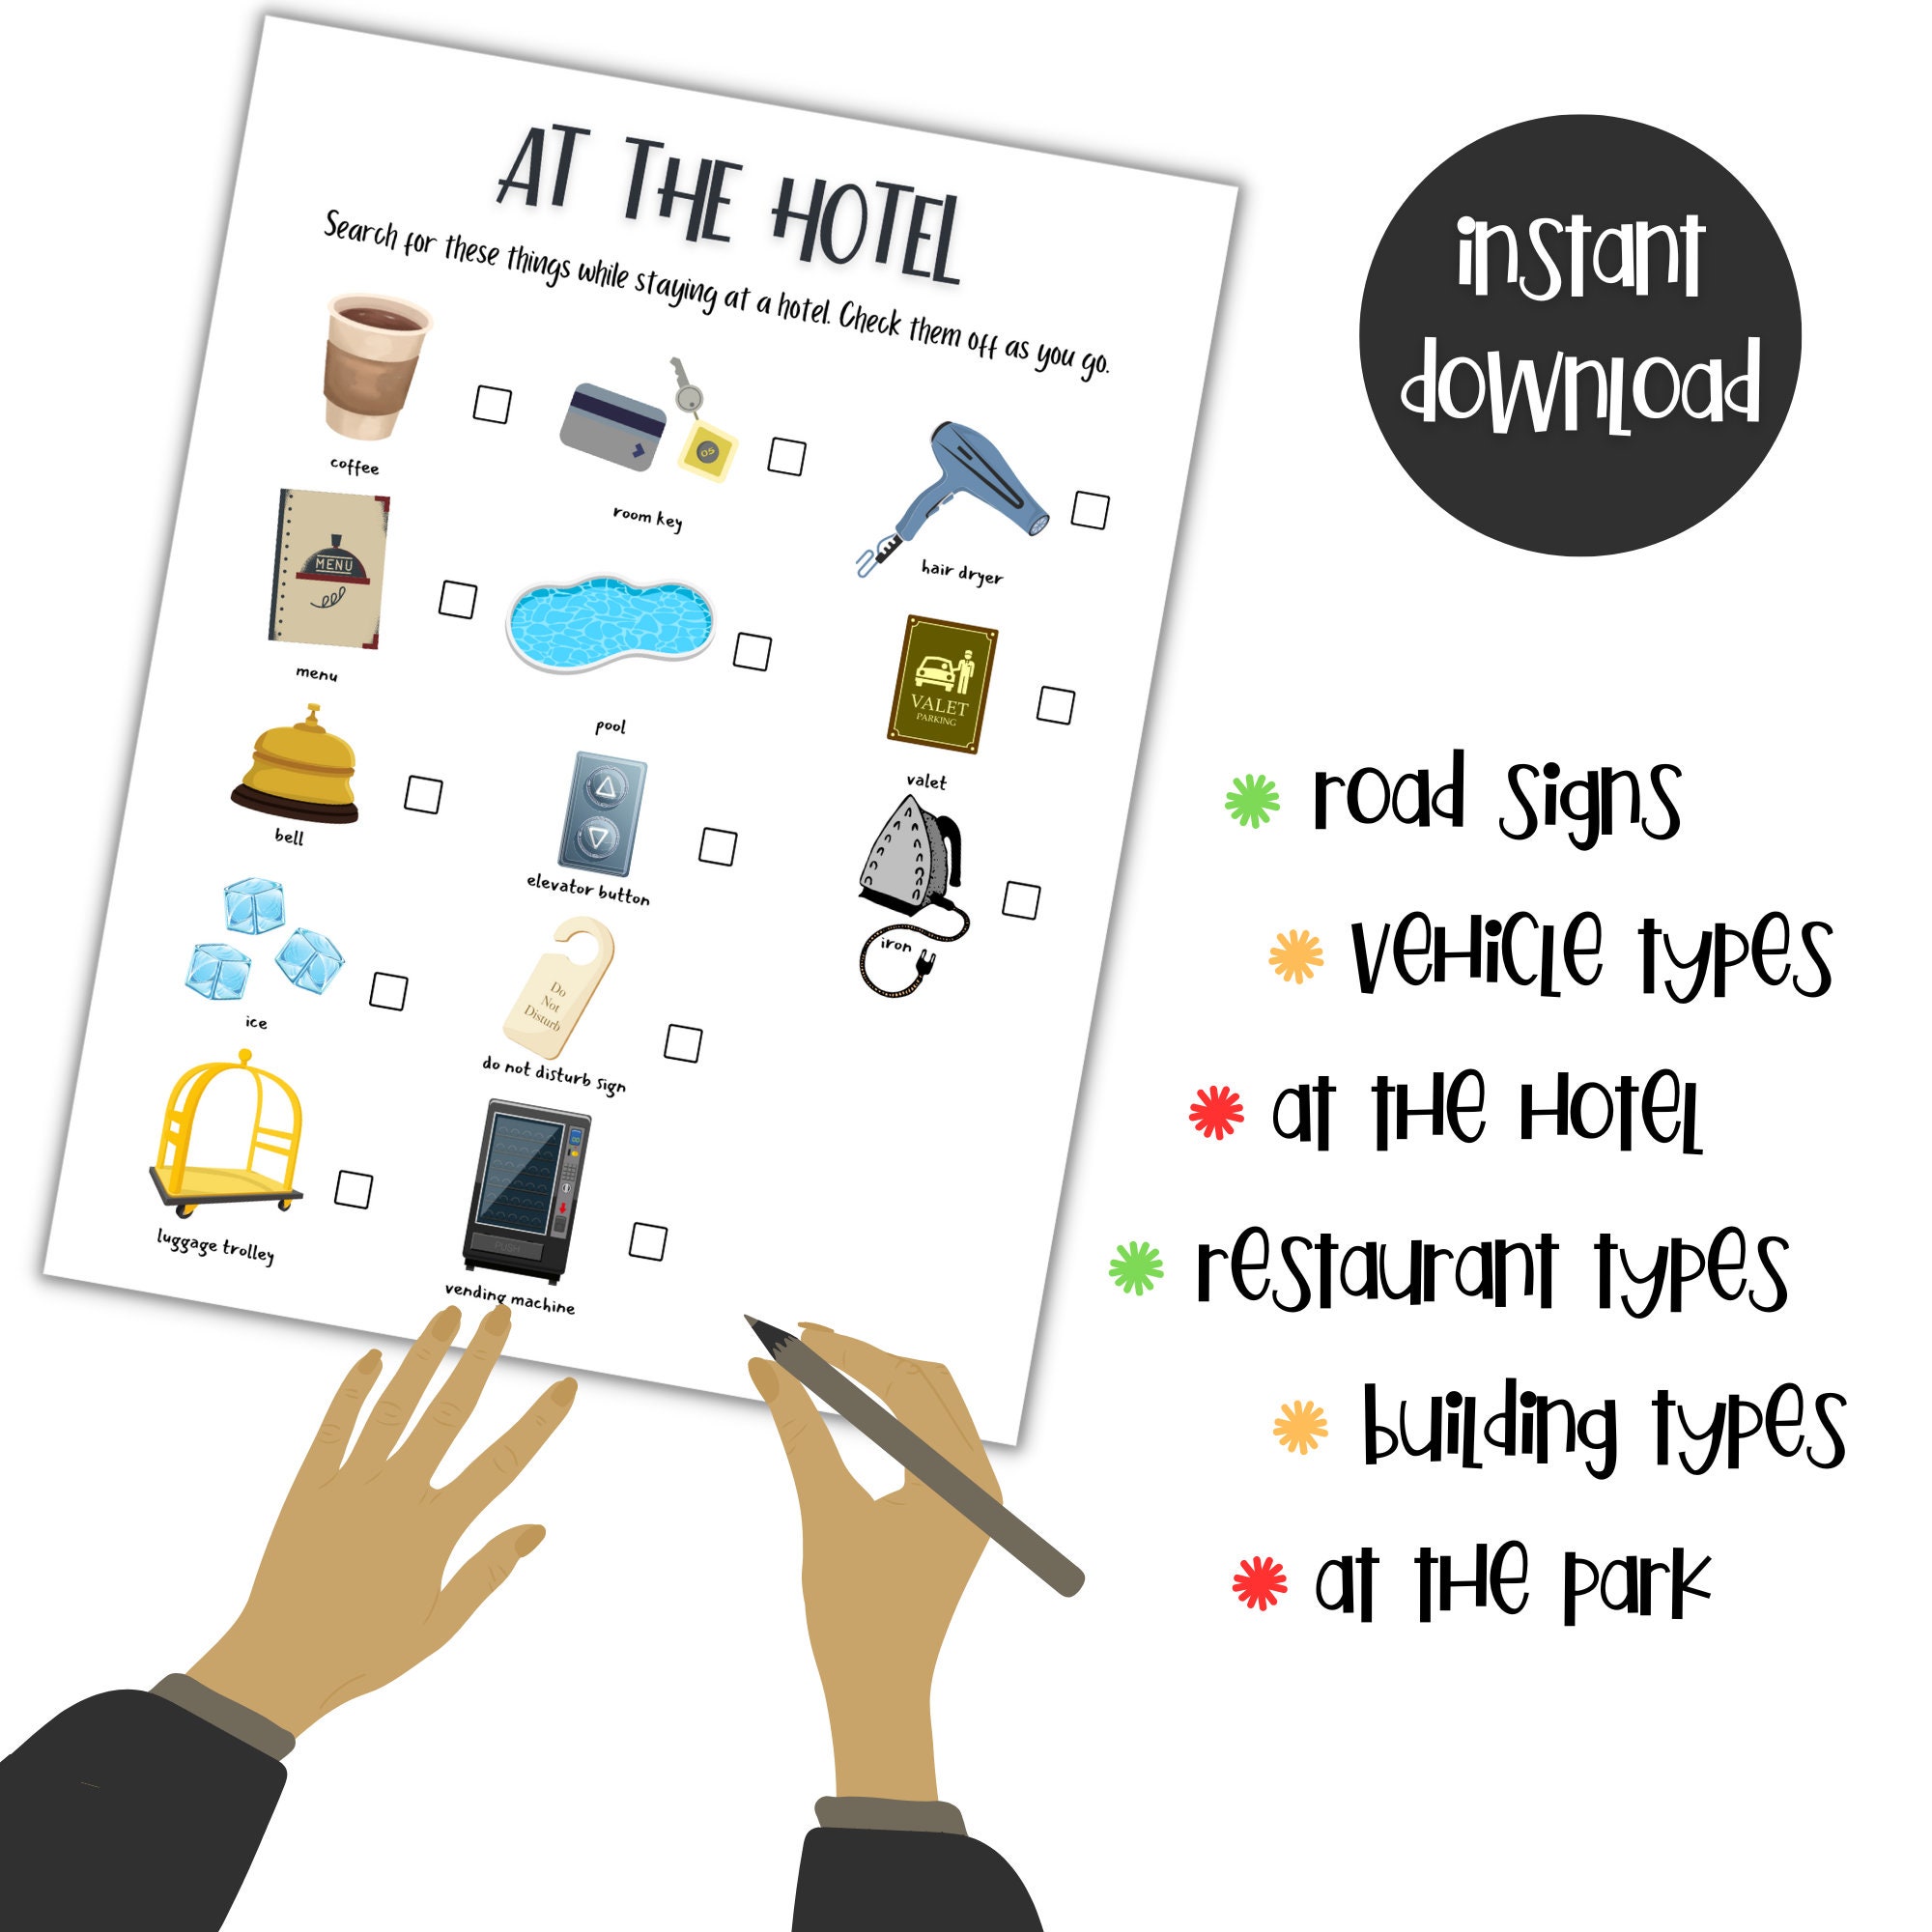 AT THE HOTEL
Search for these things while staying at a hotel. Check them off as you go.
coffee
05
room key
hair dryer
MENU
menu
pool
VALET
PARKING
valet
bell
elevator button
iron
ice
Do
Not
Disturb
do not disturb sign
luggage trolley
PUSH
vending machine
instant
download
road signs
vehicle types
at the hotel
restaurant types
building types
at the park